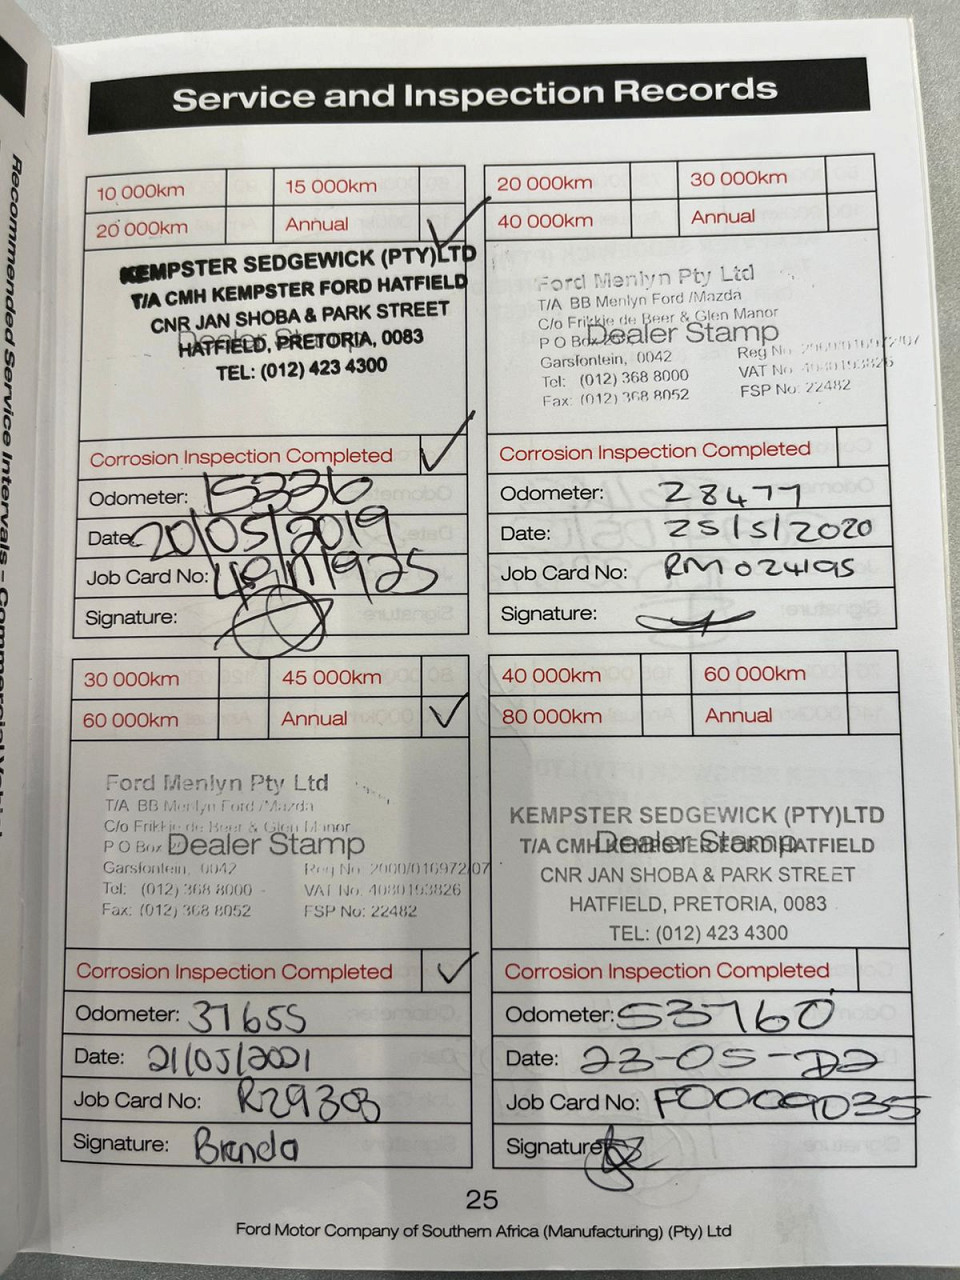 Recommended Service Intervals - Commercial Vehicl
Service and Inspection Records
10 000km 15 000km
20 000km Annual ✓
KEMPSTER SEDGEWICK (PTY)LTD
T/A CMH KEMPSTER FORD HATFIELD
CNR JAN SHOBA & PARK STREET
Dealer Stamp
HATFIELD, PRETORIA, 0083
TEL: (012) 423 4300
Corrosion Inspection Completed ✓
Odometer: 15336
Date: 20/05/2019
Job Card No:
Signature:
20 000km 30 000km
40 000km Annual
Ford Menlyn Pty Ltd
T/A BB Menlyn Ford /Mazda
C/o Frikkie de Beer & Glen Manor
P O Box
Dealer Stamp
Garsfontein, 0042 Reg No 2000/016972/07
Tel: (012) 368 8000 VAT No 4080193826
Fax: (012) 368 8052 FSP No: 22482
Corrosion Inspection Completed
Odometer: 28477
Date: 25/5/2020
Job Card No: RM024195
Signature:
30 000km 45 000km
60 000km Annual ✓
Ford Menlyn Pty Ltd
T/A BB Menlyn Ford /Mazda
C/o Frikkie de Beer & Glen Manor
P O Box
Dealer Stamp
Garsfontein, 0042 Reg No 2000/016972/07
Tel: (012) 368 8000 VAT No. 4080193826
Fax: (012) 368 8052 FSP No: 22482
Corrosion Inspection Completed ✓
Odometer: 37655
Date: 21/05/2021
Job Card No: R29303
Signature: Brenda
40 000km 60 000km
80 000km Annual
KEMPSTER SEDGEWICK (PTY)LTD
Dealer Stamp
T/A CMH KEMPSTER FORD HATFIELD
CNR JAN SHOBA & PARK STREET
HATFIELD, PRETORIA, 0083
TEL: (012) 423 4300
Corrosion Inspection Completed
Odometer: 53760
Date: 23-05-22
Job Card No: F0009035
Signature:
25
Ford Motor Company of Southern Africa (Manufacturing) (Pty) Ltd